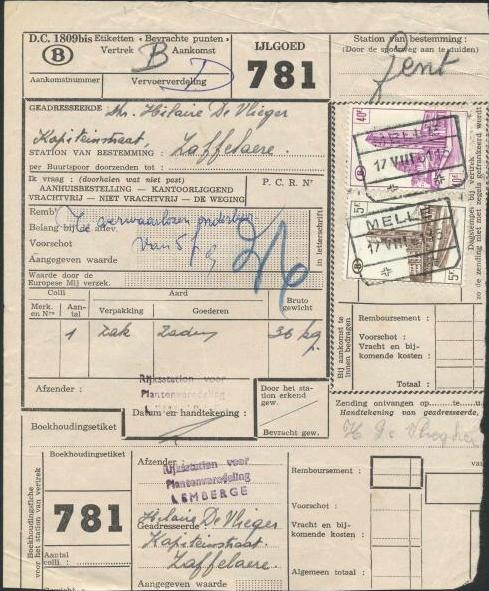 D.C. 1809bis Etiketten « Bevrachte punten »
B Vertrek B Aankomst
Aankomstnummer
Vervoerverdeling D
IJLGOED
781
Station van bestemming :
(Door de spoorweg aan te duiden)
Gent
GEADRESSEERDE Mr. Hilaire De Vlieger
Kapiteinstraat
STATION VAN BESTEMMING : Zaffelaere.
per Buurtspoor doorzenden tot :
Ik vraag : (doorhalen wat niet past)
AANHUISBESTELLING — KANTOORLIGGEND
VRACHTVRIJ — NIET VRACHTVRIJ — DE WEGING
P. C. R. Nr
Remb
Belang bij de aflev.
Voorschot van 5 f
Aangegeven waarde
in letterschrift
Waarde door de
Europese Mij verzek.
Colli
Aard
Bruto
gewicht
Merk.
en Nrs
Aan-
tal
Verpakking
Goederen
1 zak zaden 36 kg
Afzender :
Rijksstation voor
Plantenveredeling
Datum en handtekening :
Door het sta-
tion erkend
gew.
Bevracht gew.
Boekhoudingsetiket
40F
17 VIII
B
5F
MELLE
17 VIII
B
5F
Dagstempels bij vertrek
zo de zending niet met zegels gefrankeerd werdt
Bij aankomst te
innen bedragen
Remboursement :
Voorschot :
Vracht en bij-
komende kosten :
Totaal :
Zending ontvangen op......te....u.
Handtekening van geadresseerde,
H De Vlieghe
Boekhoudingsfiche
voor het station van vertrek
Boekhoudingsetiket
781
Aantal
colli :
Gewicht :
Afzender :
Rijksstation voor
Plantenveredeling
LEMBERGE
Hilaire De Vlieger
Geadresseerde
Kapiteinstraat.
Zaffelaere.
Aangegeven waarde
Remboursement :
Voorschot :
Vracht en bij-
komende kosten :
Algemeen totaal :
van